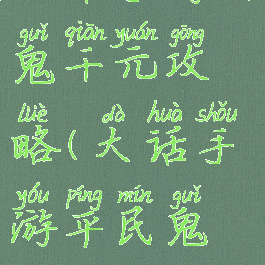 guǐ qiān yuán gōng
鬼千元攻
lüè dà huà shǒu
略(大话手
yóu píng mín guǐ
游平民鬼